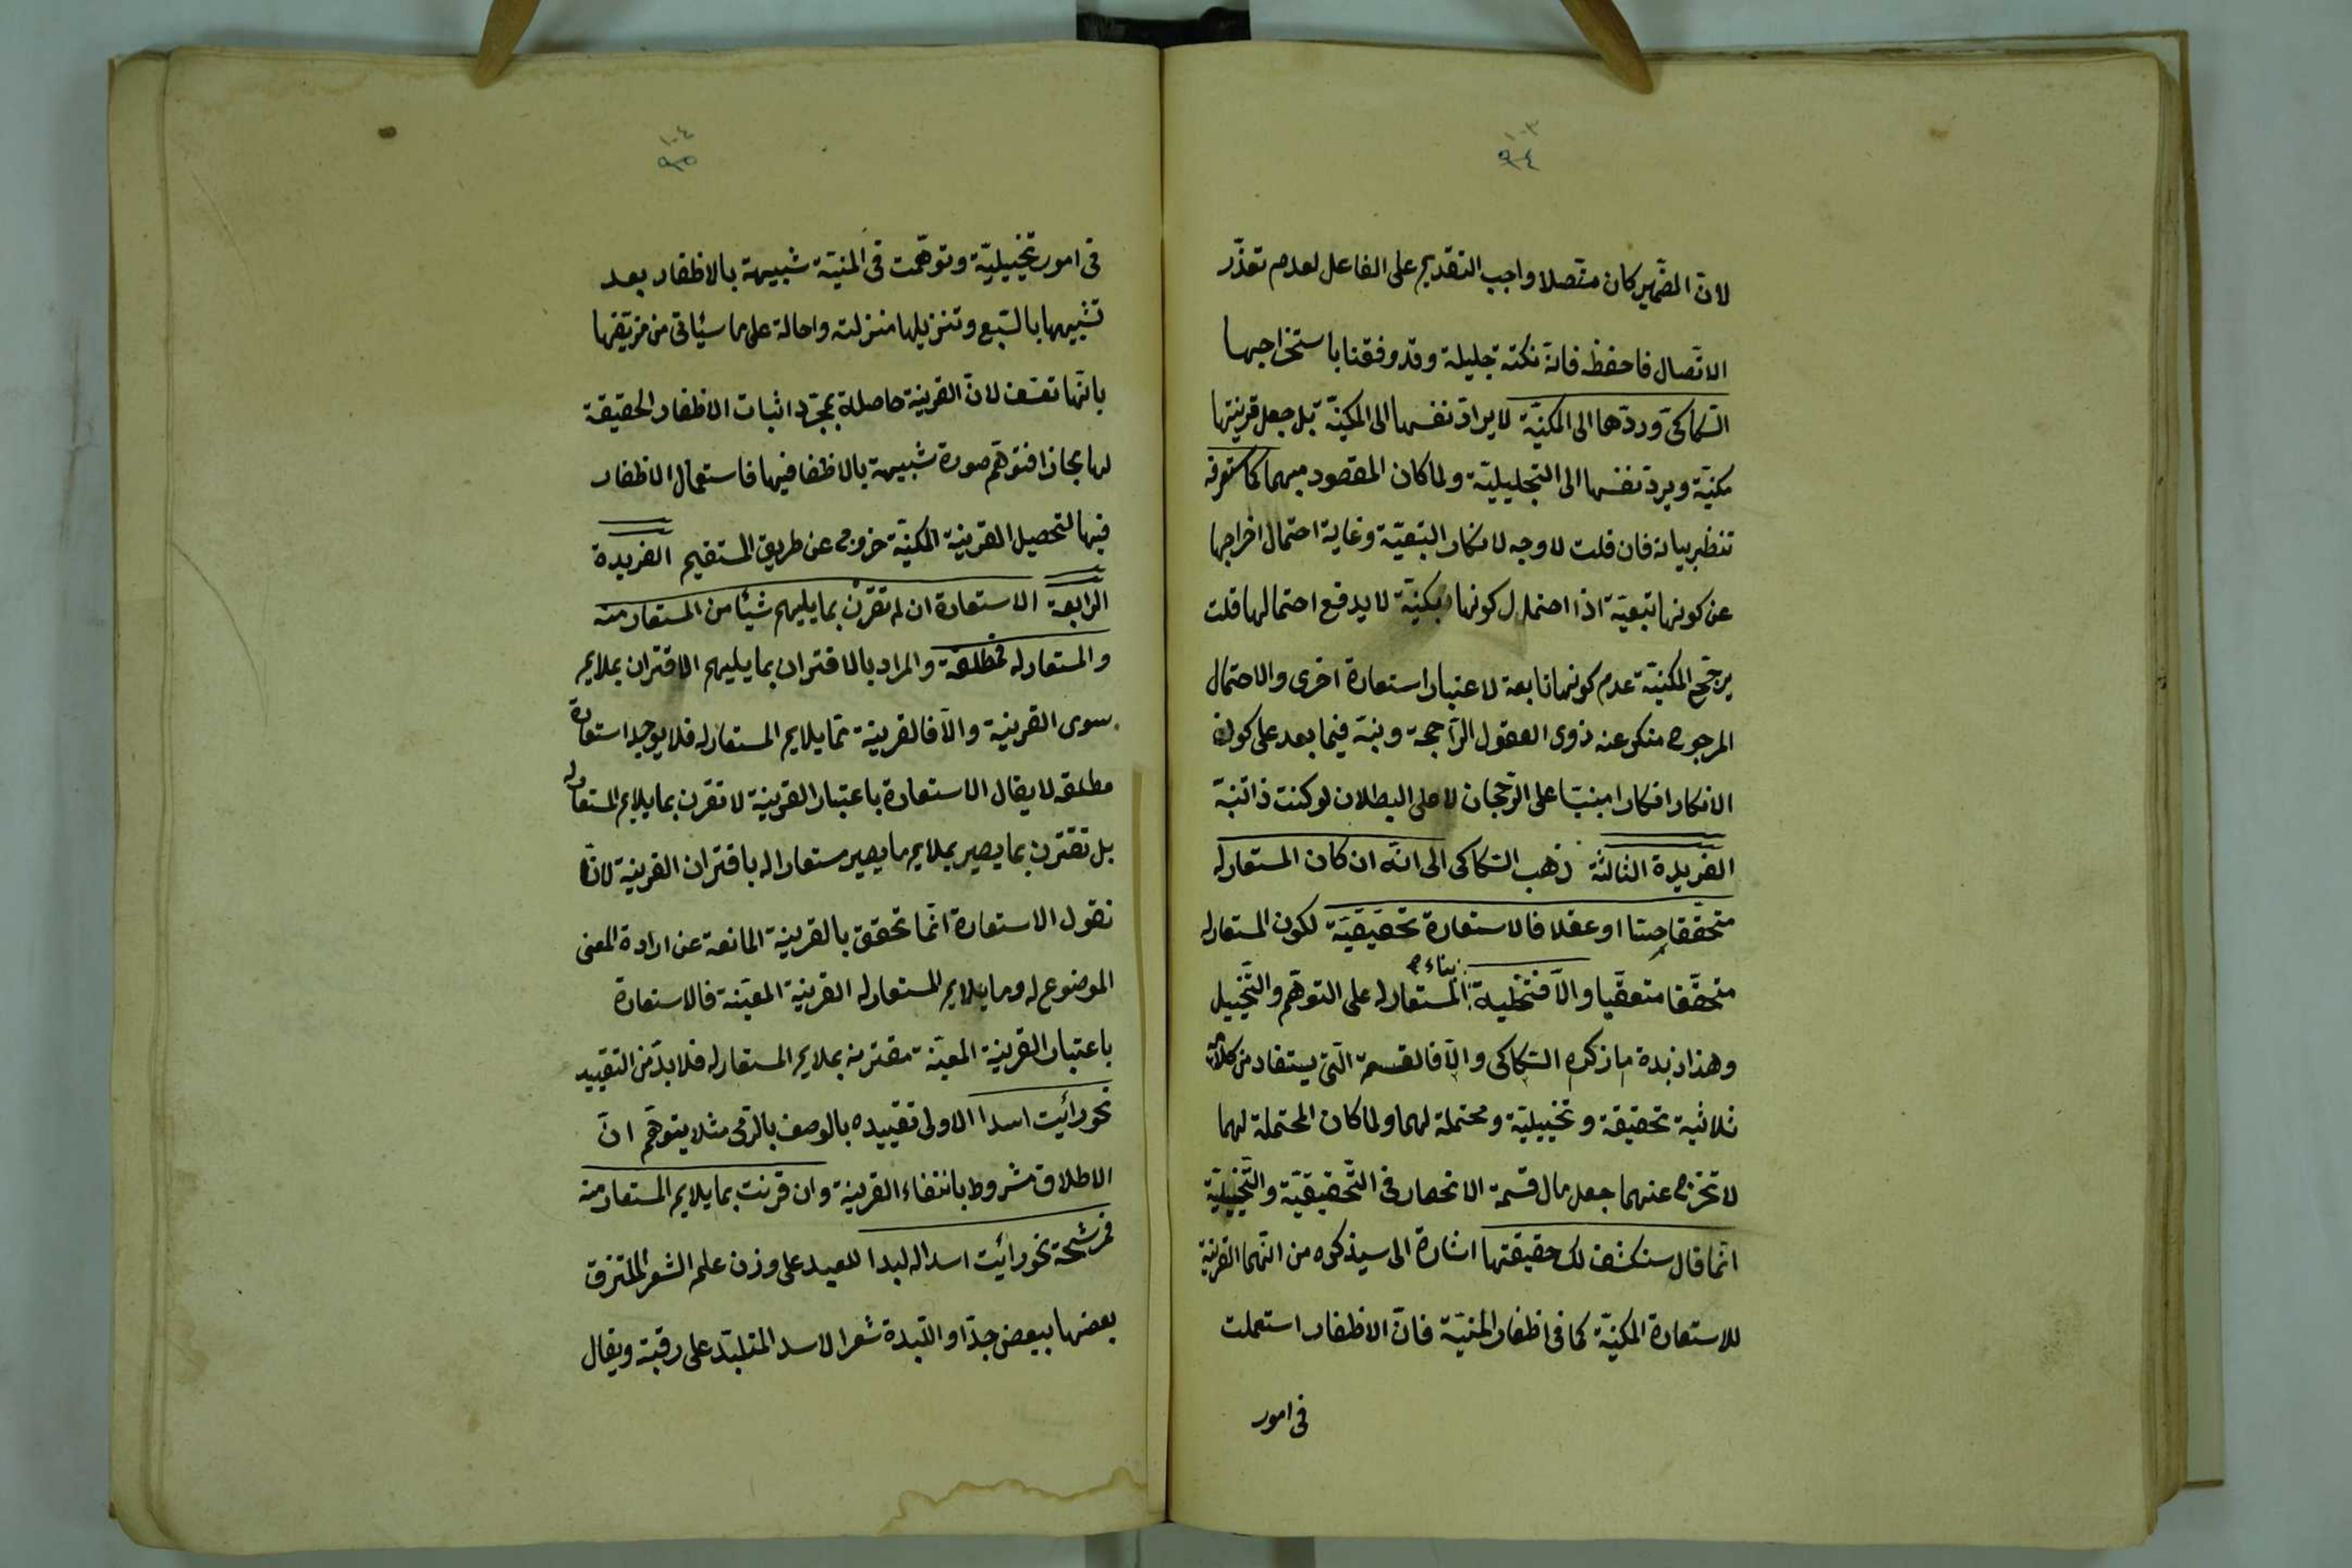 ١٠٣
٩٤
لانّ الضّمير كان متّصلا واجب التقديم على الفاعل لعدم تعذّر
الاتّصال فاحفظه فانّه نكتة جليلة وقد وفقنا باستخراجها
السّكاكىّ وردّها الى المكنيّة لا يراد نفسها الى المكنيّة بل جعل قرينتها
مكنيّة ويردّ نفسها الى التخييليّة ولما كان المقصود مبهما كما ستعرفه
تنظر بيانه فان قلت لا وجه لانكار التبعيّة وغاية احتمال اخراجها
عن كونها تبعيّة اذا احتمال كونها مكنيّة لا يدفع احتمالها قلت
يرجّح المكنيّة عدم كونها تابعة لاعتبار استعارة اخرى والاحتمال
المرجوح منكر عند ذوى العقول الرّاجحة ونبّه فيما بعد على كون
الانكار انكارا مبنيّا على الرّجحان لا على البطلان لو كنت ذا تنبّه
الفريدة الثالثة ذهب السّكاكى الى انّه ان كان المستعار له
متحقّقا حسّا او عقلا فالاستعارة تحقيقيّة لكون المستعار له
متحقّقا متعقّيا والّا فتخيلية بناء المستعار له على التوهّم والتّخييل
وهذا زبدة ما ذكره السّكاكى والّا فالقسمة الّتى يستفاد من كلامه
ثلاثية تحقيقة وتخييليّة ومحتملة لهما ولما كان المحتملة لهما
لا تخرج عنهما جعل مال قسمة الانحصار فى التّحقيقيّة والتّخييليّة
انّما قال ستكشف لك حقيقتها اشارة الى سيذكره من انّهما القرينة
للاستعارة المكنيّة كما فى اظفار المنيّة فانّ الاظفار استعملت
فى امور
١٠٤
٩٥
فى امور تخييليّة وتوهّمت فى المنيّة شبيهة بالاظفار بعد
تشبيهها بالسّبع وتنزيلها منزلته واحالة على ما سيأتى من تزييفها
بانّها تعسّف لانّ القرينة حاصلة بمجرّد اثبات الاظفار الحقيقة
لها مجازا فتوهّم صورة شبيهة بالاظفار فيها فاستعمال الاظفار
فيها لتحصيل القرينة المكنيّة خروج عن طريق المستقيم الفريدة
الرّابعة الاستعارة ان لم تقترن بما يليهم شيئا من المستعار منه
والمستعار له فمطلقة والمراد بالاقتران بما يليهم الاقتران بملايم
سوى القرينة والّا فالقرينة ممّا يلايم المستعار له فلا يوجد استعارة
مطلقة لا يقال الاستعارة باعتبار القرينة لا تقرن بما يلايم المستعار له
بل تقترن بما يصير بملايم ما يصير مستعارا له باقتران القرينة لانّا
نقول الاستعارة انّما تحقق بالقرينة المانعة عن ارادة المعنى
الموضوع له وما يلايم للمستعار له القرينة المعيّنة فالاستعارة
باعتبار القرينة المعيّنة مقترنة بملايم المستعار له فلا بدّ من التقييد
نحو رأيت اسدا الاولى تقييده بالوصف بالرّمى مثلا يتوهّم انّ
الاطلاق مشروط بانتفاء القرينة وان قرنت بما يلايم المستعار منه
فمرشّحة نحو رأيت اسدا له لبدا للعبد على وزن علم الشعر الملتزق
بعضها ببعض جدّا واللّبدة شعر الاسد المتلبّد على رقبته ويقال